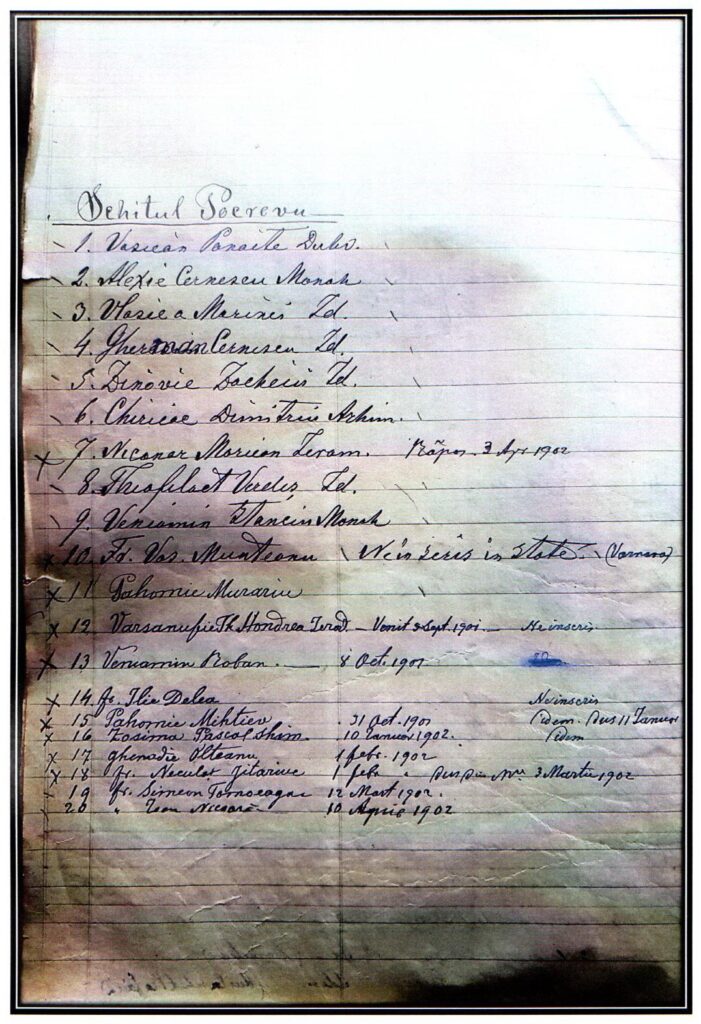 Schitul Pocrovu
1. Vasian Panaite Duhv.
2. Alexie Cernescu Monah
3. Vlasie a Marinei Id.
4. Gherman Cernescu Id.
5. Zinovie Id.
6. Chiriac Dimitriu Arhim.
7. Nicanor Morian Ieram. Răpos. 3 Apr. 1902
8. Theofilact Verdes Id.
9. Veniamin Stanciu Monah
10. Fr. Vas. Munteanu Neinscris in State. (Varnava)
11 Pahomie Murariu
12 Varsanufie Th. Hondrea Ierod. – Venit 9 Sept. 1901 – Neinscris
13 Veniamin Roban. — 8 Oct. 1901
14 fr. Ilie Delea Neinscris
15 Pahomie Mihtiev . 31 Oct. 1901 idem. dus 11 Ianuar
16 Zosima Pascal shim. . 10 Ianuar 1902. idem
17 ghenadie Olteanu 1 febr. 1902
18 fr. Neculai Jitariuc 1 febr " 3 Martie 1902
19 fr. Simeon 12 Mart. 1902.
20 " Ioan 10 Aprie 1902